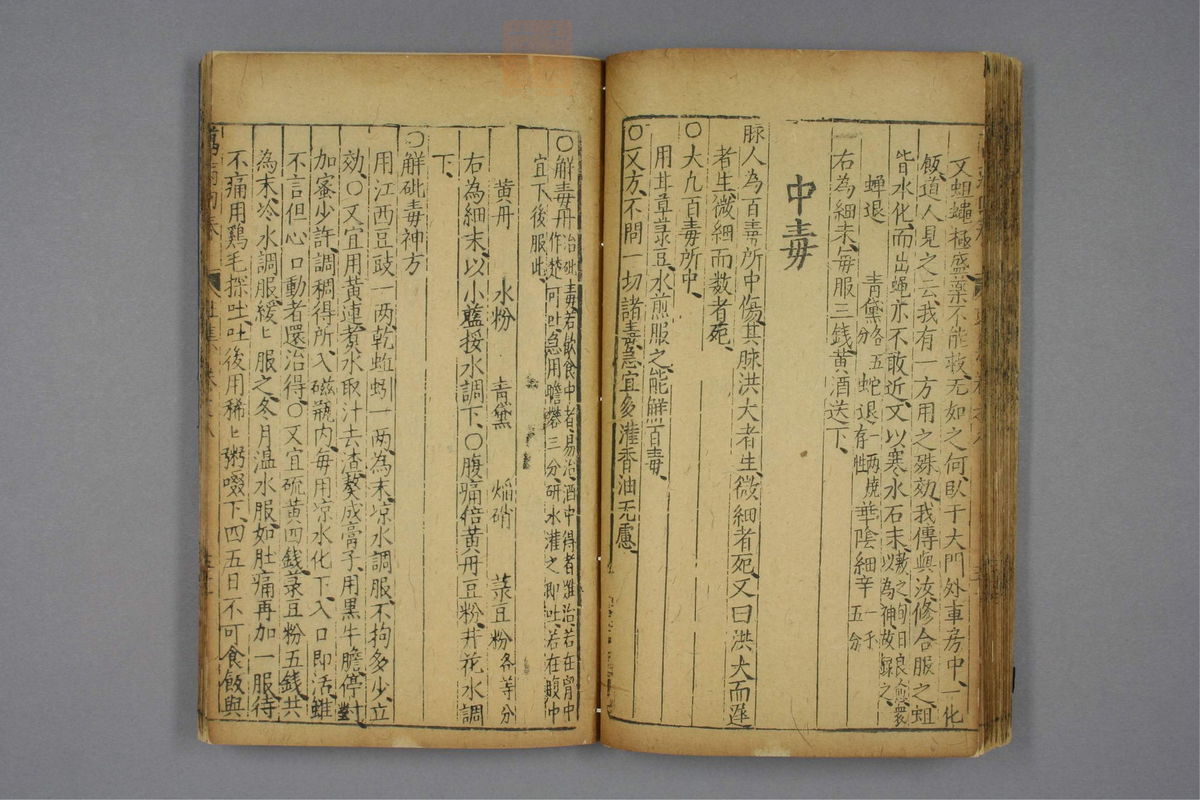 又蛆蠅極盛藥不能救无如之何臥于大門外車房中一化
飯道人見之云我有一方用之殊効我傳與汝修合服之蛆
皆水化而出蠅亦不敢近又以寒水石末摻之旬日良愈衆以為神故錄之
蟬退 青黛各五分 蛇退一兩燒存性 華陰細辛 五分
右為細末每服三錢黄酒送下
中毒
脉人為百毒所中傷其脉洪大者生微細者死又曰洪大而遲
者生微細而数者死
〇大凡百毒所中
用甘草菉豆水煎服之能解百毒
〇又方不問一切諸毒急宜多灌香油无慮
〇解毒丹治砒毒若飲食中者易治酒中得者難治若在胷中
作楚可吐急用膽礬三分研水灌之即吐若在腹中宜下後服此
黄丹 水粉 青黛 焰硝 菉豆粉各等分
右為細末以小藍挼水調下〇腹痛倍黄丹豆粉井花水調
下
〇解砒毒神方
用江西豆豉一两乾蚯蚓一两為末凉水調服不拘多少立
効〇又宜用黄連煮水取汁去渣熬成膏子用黒牛膽停對
加蜜少許調稠得所入磁瓶内每用凉水化下入口即活雖
不言但心口動者還治得〇又宜硫黄四錢菉豆粉五錢共
為末冷水調服緩ヒ服之冬月温水服如肚痛再加一服待
不痛用鷄毛探吐吐後用稀ヒ粥啜下四五日不可食飯與